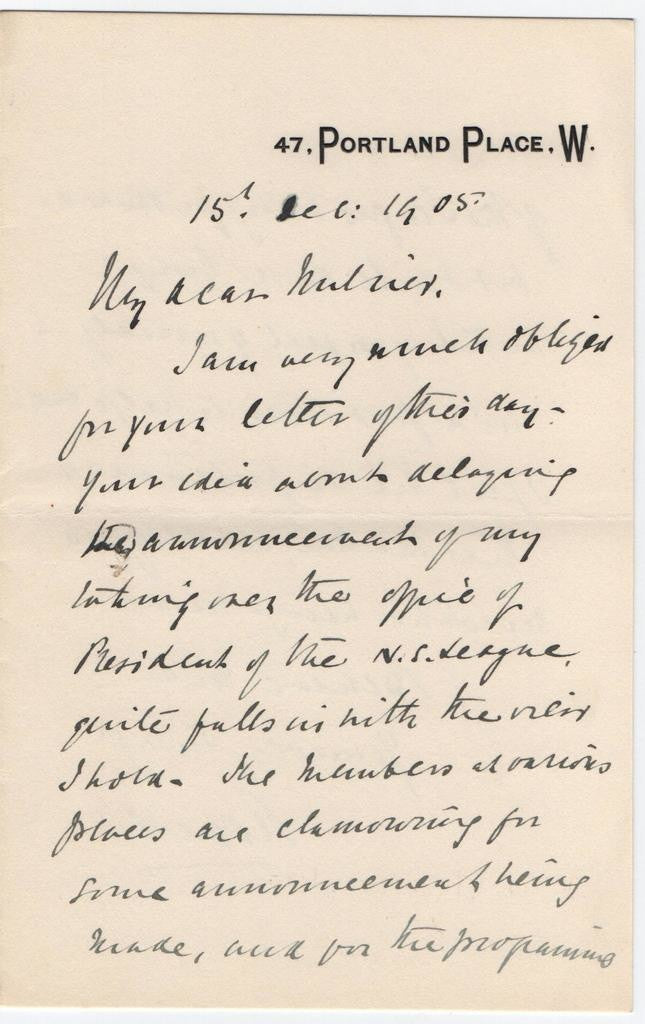 47, PORTLAND PLACE, W.
15t. Dec: 1905
My dear Milner,
I am very much obliged
for your letter of this day -
your idea about delaying
the announcement of my
taking over the office of
President of the N.S. League,
quite falls in with the view
I hold - The Members at various
places are clamouring for
some announcement being
made, and for the programme